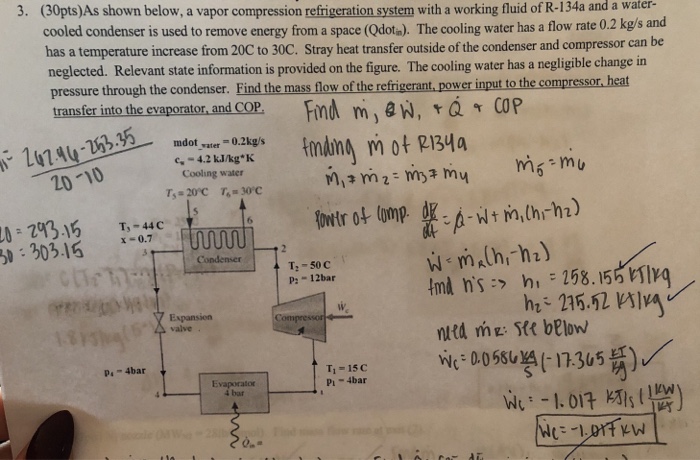 3. (30pts)As shown below, a vapor compression refrigeration system with a working fluid of R-134a and a water-
cooled condenser is used to remove energy from a space (Qdotin). The cooling water has a flow rate 0.2 kg/s and
has a temperature increase from 20C to 30C. Stray heat transfer outside of the condenser and compressor can be
neglected. Relevant state information is provided on the figure. The cooling water has a negligible change in
pressure through the condenser. Find the mass flow of the refrigerant, power input to the compressor, heat
transfer into the evaporator, and COP.
Find ṁ, Ẇ, + Q̇ + COP
262.96-253.35
20-10
mdot water = 0.2kg/s
c = 4.2 kJ/kg*K
Cooling water
T5 = 20°C T6 = 30°C
finding ṁ of R134a
ṁ1 = ṁ2 = ṁ3 = ṁ4
ṁ5 = ṁ6
20 = 293.15
30 = 303.15
T3 = 44 C
x = 0.7
5
6
3
2
Condenser
Power of comp. dE/dt = Q̇ - Ẇ + ṁ1(h1-h2)
T2 = 50 C
P2 = 12bar
Ẇ = ṁR(h1-h2)
find h's => h1 = 258.155 kJ/kg
h2 = 275.52 kJ/kg
Expansion
valve
Compressor
Ẇc
need ṁR: see below
P4 = 4bar
T1 = 15 C
P1 = 4bar
Ẇc = 0.0586 kg/s (-17.365 kJ/kg)
Evaporator
4 bar
Ẇc = -1.017 kJ/s (1kW/1kJ/s)
Ẇc = -1.017 kW
Q̇in